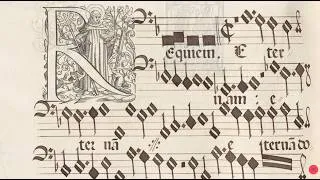 REquiem. E ter
nam: e
ter nã e
ternãdo